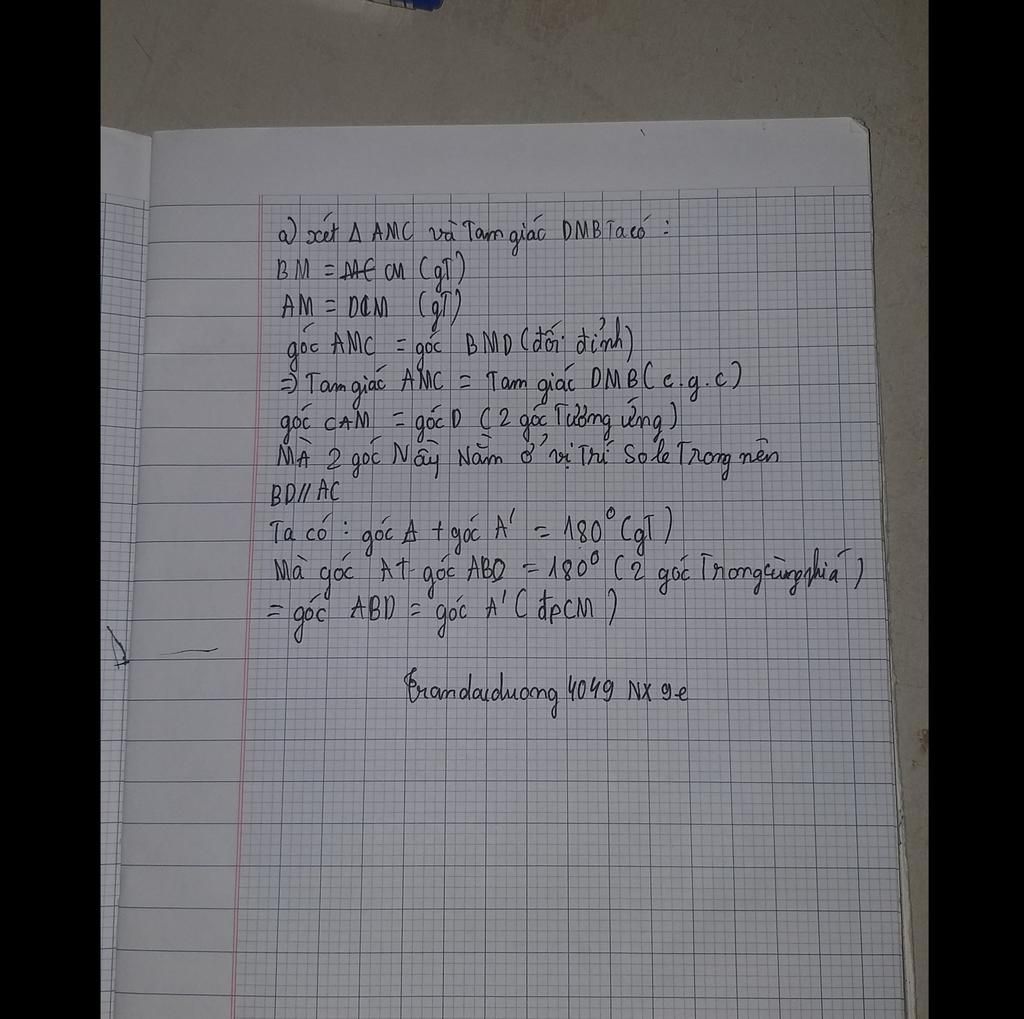 a) xét Δ AMC và Tam giác DMB Ta có :
BM = CM (gT)
AM = DM (gT)
góc AMC = góc BMD (đối đỉnh)
=> Tam giác AMC = Tam giác DMB ( c.g.c)
góc CAM = góc D ( 2 góc Tương ứng)
MÀ 2 góc Nãy Nằm ở vị Trí So le Trong nên
BD // AC
Ta có : góc A + góc A' = 180° (gT)
Mà góc A + góc ABD = 180° ( 2 góc Trong cùng phía )
= góc ABD = góc A' ( đpCM )
trandaiduong 4049 NX 9e